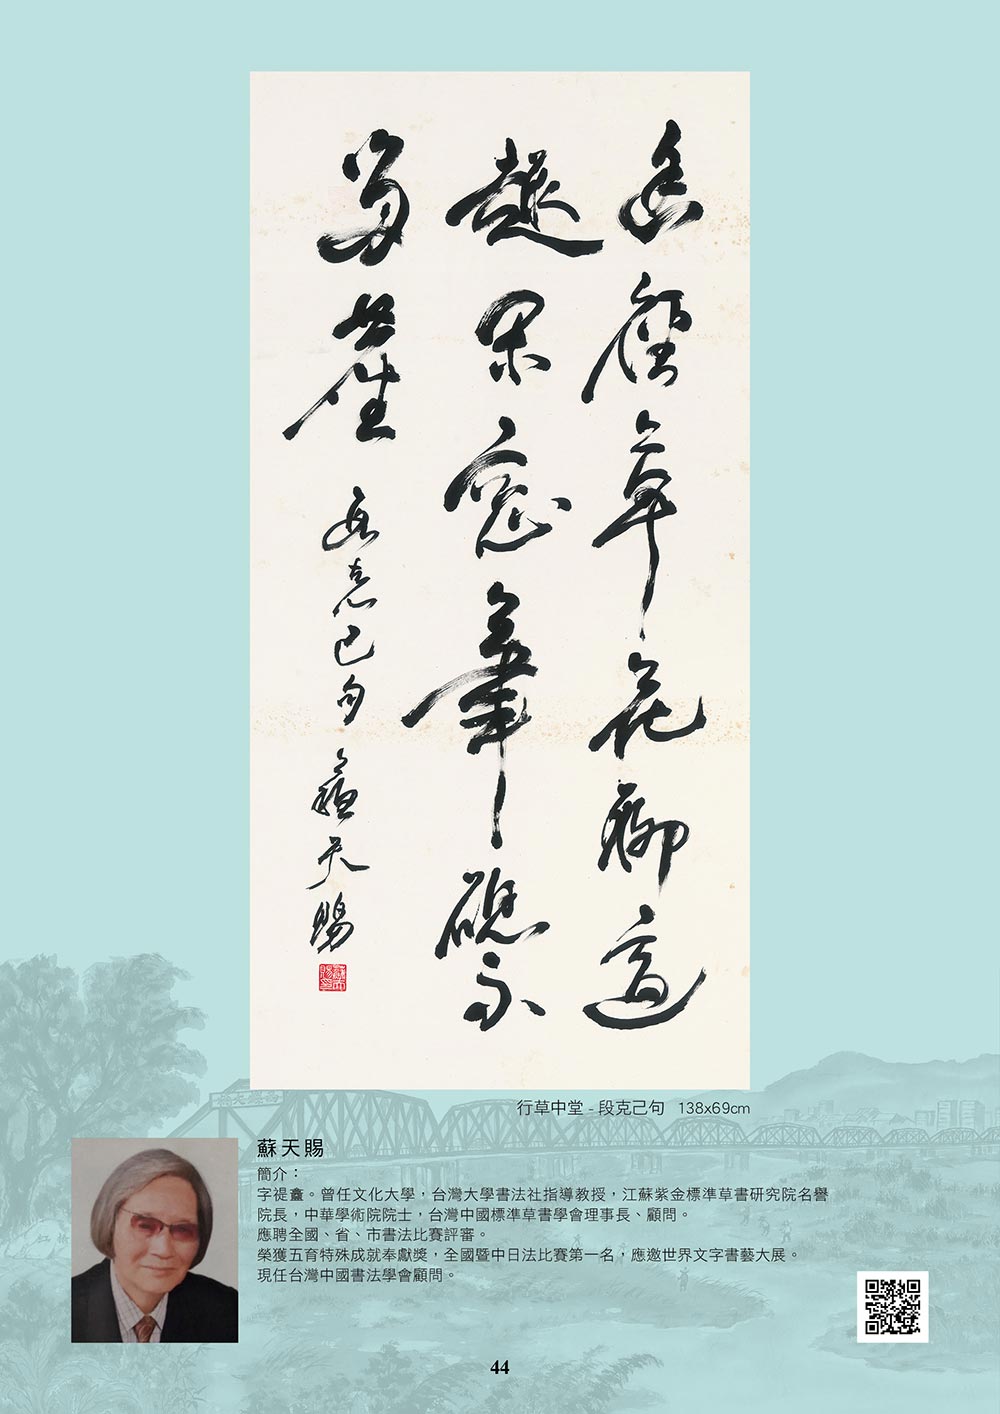 幽草花聊適
趣閑窗筆硯不
段克己句 蘇天賜
蘇天賜印
行草中堂 - 段克己句 138x69cm
蘇天賜
簡介：
字禔盦。曾任文化大學，台灣大學書法社指導教授，江蘇紫金標準草書研究院名譽
院長，中華學術院院士，台灣中國標準草書學會理事長、顧問。
應聘全國、省、市書法比賽評審。
榮獲五育特殊成就奉獻獎，全國暨中日法比賽第一名，應邀世界文字書藝大展。
現任台灣中國書法學會顧問。
44